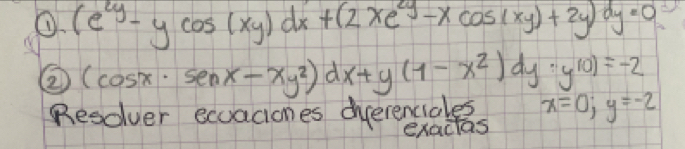 ①. (e^2y - y cos (xy) dx + (2xe^2y - x cos(xy) + 2y) dy = 0
② (cosx · senx - xy²) dx + y (1 - x²) dy ; y(0) = -2
Resolver ecuaciones diferenciales x=0; y=-2
exactas